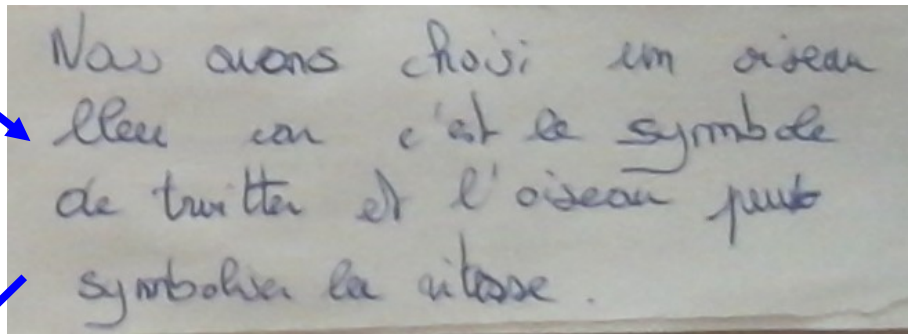 Nous avons choisi un oiseau
bleu car c'est le symbole
de twitter et l'oiseau peut
symboliser la vitesse.